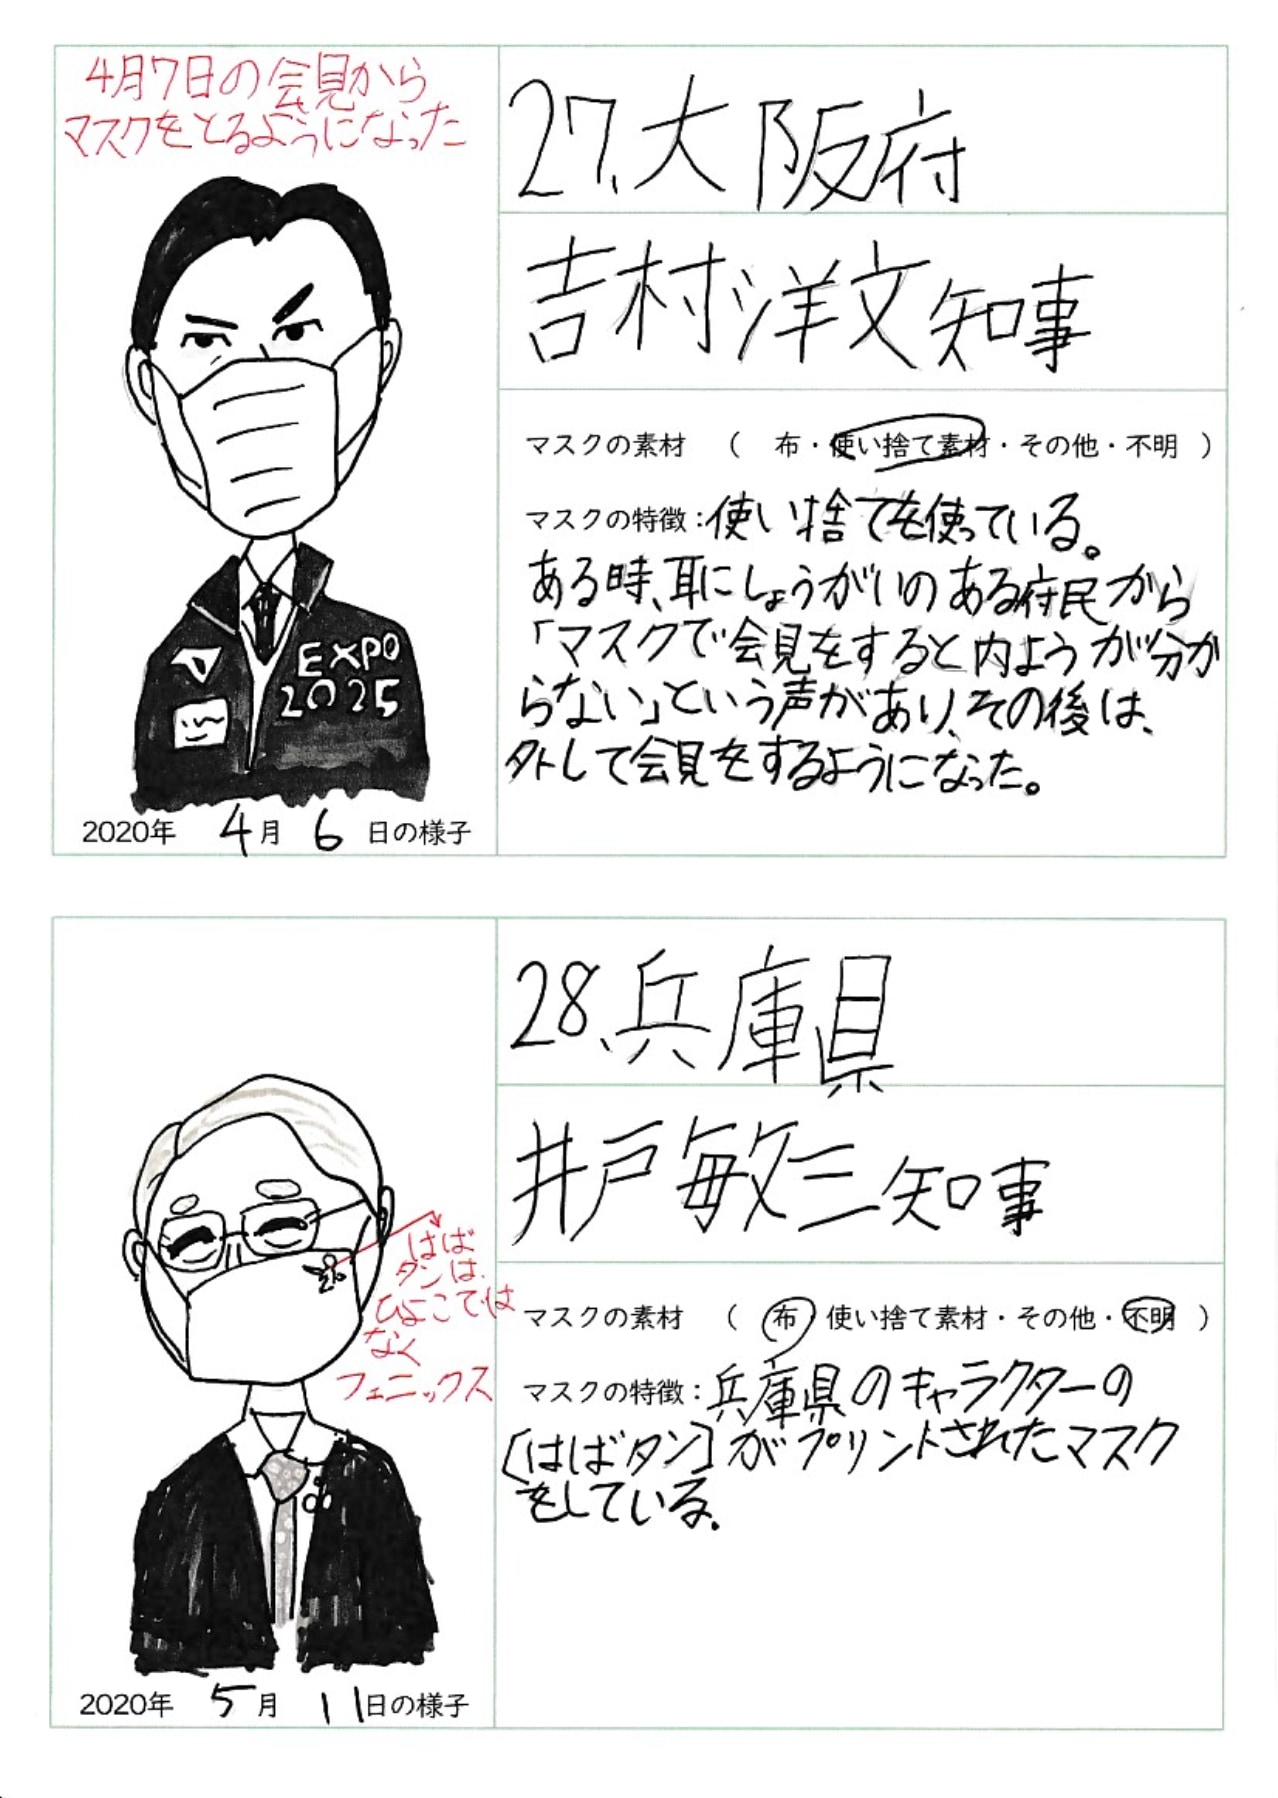 4月7日の会見から
マスクをとるようになった
EXPO
2025
2020年 4月 6日の様子
27.大阪府
吉村洋文知事
マスクの素材 ( 布・使い捨て素材・その他・不明 )
マスクの特徴:使い捨てを使っている。
ある時、耳にしょうがいのある府民から
「マスクで会見をすると内ようが分か
らない」という声があり、その後は、
外して会見をするようになった。
28.兵庫県
井戸敏三知事
はば
タンは、
ひよこでは
なく
フェニックス
2020年 5月 11日の様子
マスクの素材 ( 布・使い捨て素材・その他・不明 )
マスクの特徴:兵庫県のキャラクターの
[はばタン]がプリントされたマスク
をしている.